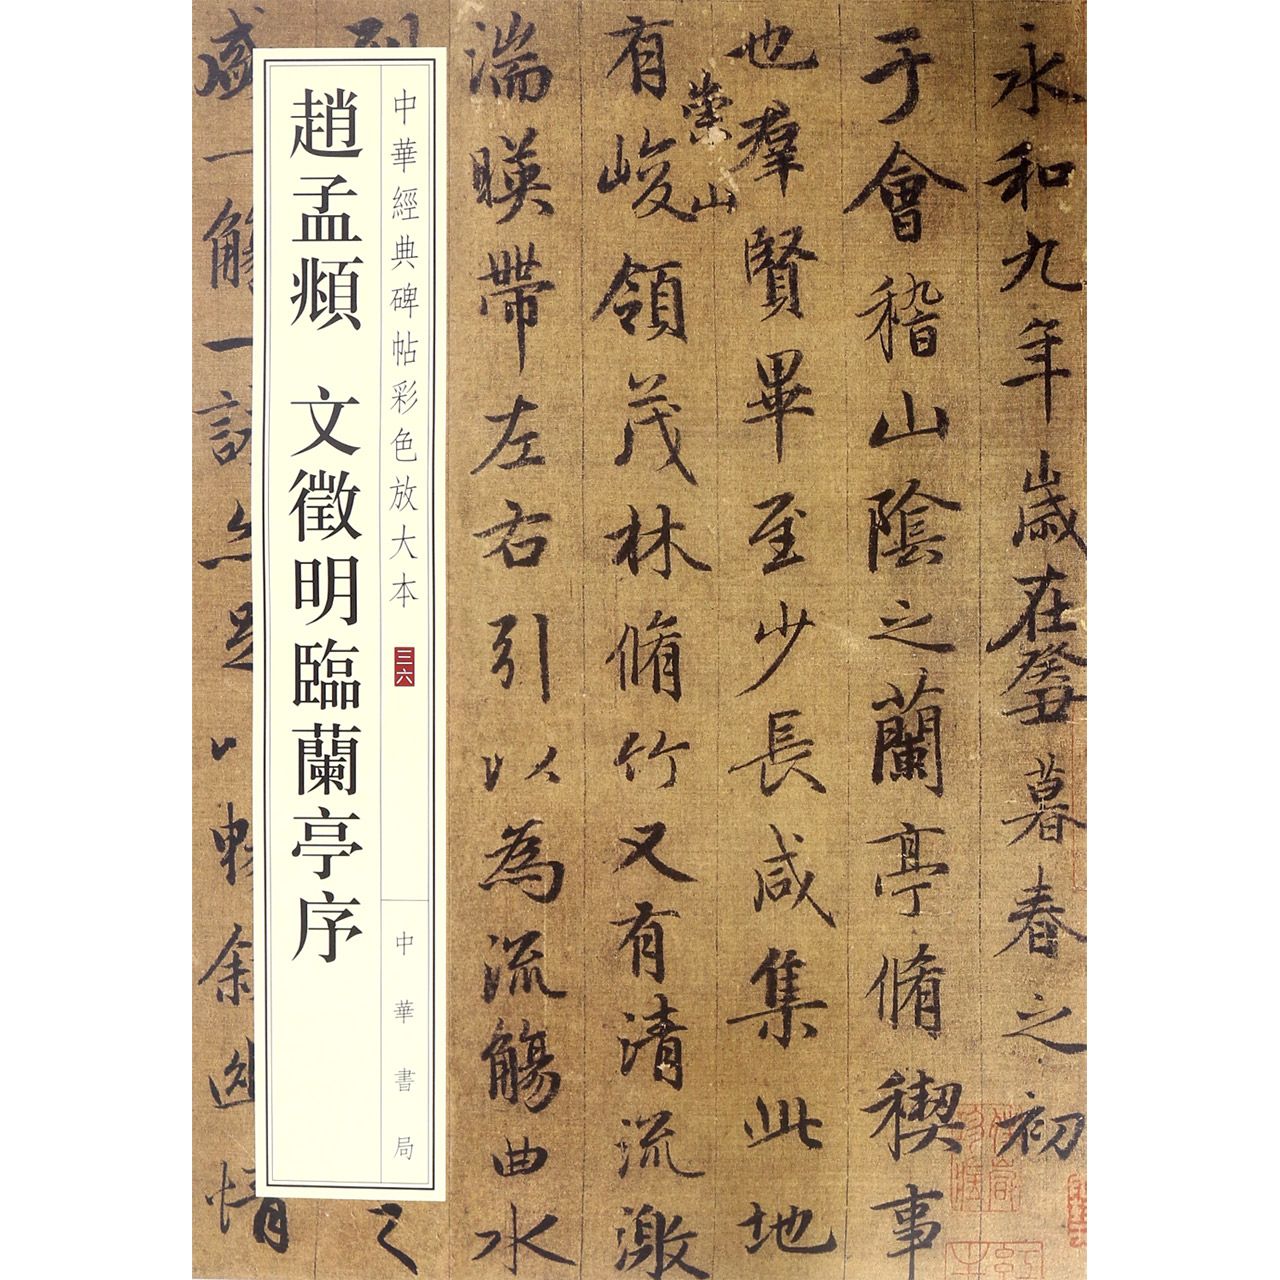 永和九年歲在癸丑暮春之初
于會稽山陰之蘭亭脩稧事
也羣賢畢至少長咸集此地
有崇山峻領茂林脩竹又有清流激
湍暎帶左右引以為流觴曲水
列
之
中華經典碑帖彩色放大本
三六
中華書局
趙孟頫 文徵明臨蘭亭序
盛一觴一詠亦足以暢叙幽情